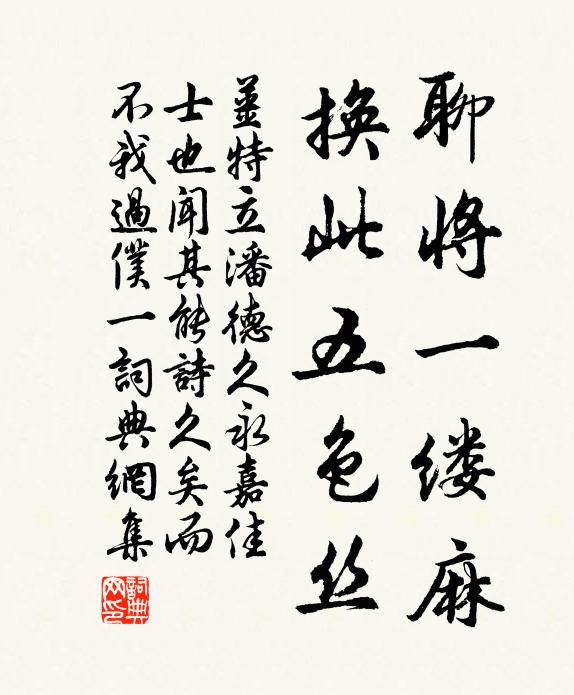 聊将一缕麻
换此五色丝
薑特立潘德久永嘉佳
士也闻其能詩久矣而
不我過僕一詞典網集
詞典網印